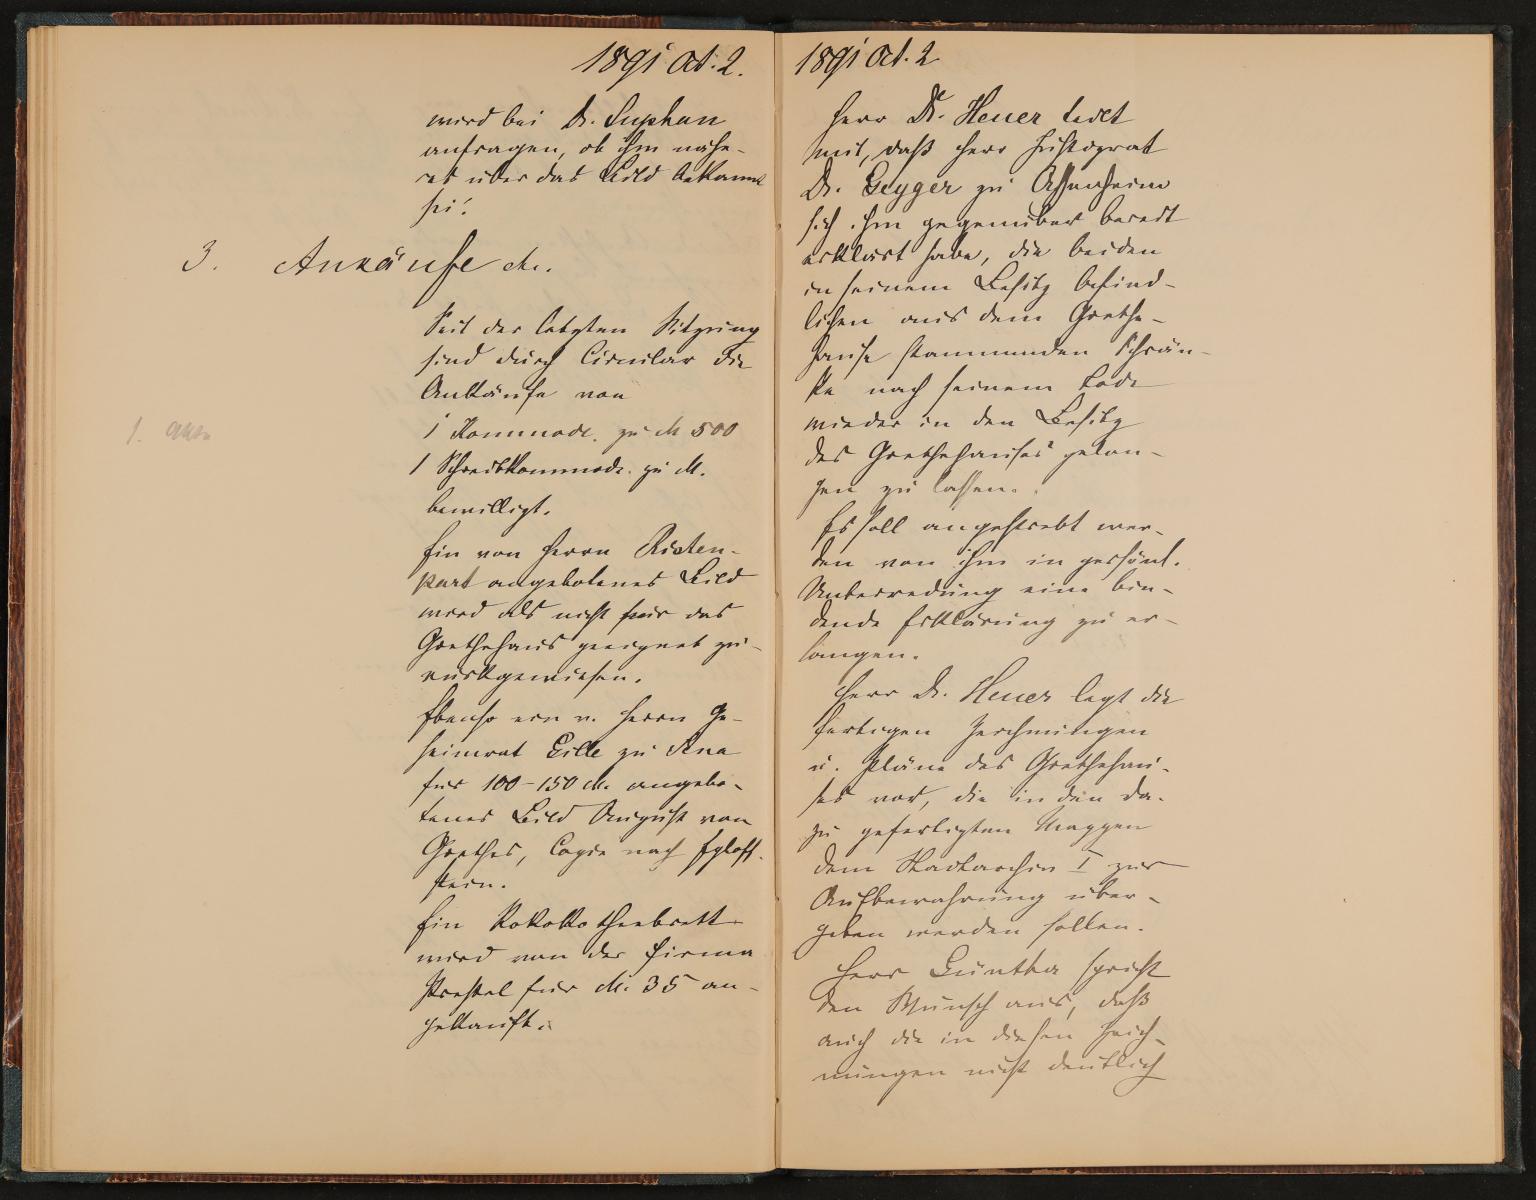 1891 Oct. 2.
wird bei Dr. Suphan
anfragen, ob ihm nähe-
res über das Bild bekannt
sei.
3. Ankäufe etc.
Seit der letzten Sitzung
sind durch Circular die
Ankäufe von
1. Akten
1 Kommode. zu M 500
1 Schreibkommode. zu M.
bewilligt.
Ein von Herrn Risten-
part angebotenes Bild
wird als nicht für das
Goethehaus geeignet zu-
rückgewiesen.
Ebenso ein v. Herrn Ge-
heimrat Gille zu Jena
für 100-150 M. angebo-
tenes Bild August von
Goethes, Copie nach Egloff-
stein.
Ein Rokoko Theebrett
wird von der Firma
Prestel für M. 35 an-
gekauft.
1891 Oct. 2
Herr Dr. Heuer teilt
mit, daß Herr Justizrat
Dr. Geyger zu Assenheim
sich ihm gegenüber bereit
erklärt habe, die beiden
in seinem Besitz befind-
lichen aus dem Goethe-
hause stammenden Schrän-
ke nach seinem Tode
wieder in den Besitz
des Goethehauses gelan-
gen zu lassen.
Es soll angestrebt wer-
den von ihm in persönl.
Unterredung eine bin-
dende Erklärung zu er-
langen.
Herr Dr. Heuer legt die
fertigen Zeichnungen
u. Pläne des Goethehau-
ses vor, die in den da-
zu gefertigten Mappen
dem Stadtarchiv I zur
Aufbewahrung über-
geben werden sollen.
Herr Günther spricht
den Wunsch aus, daß
auch die in diesen Zeich-
nungen nicht deutlich